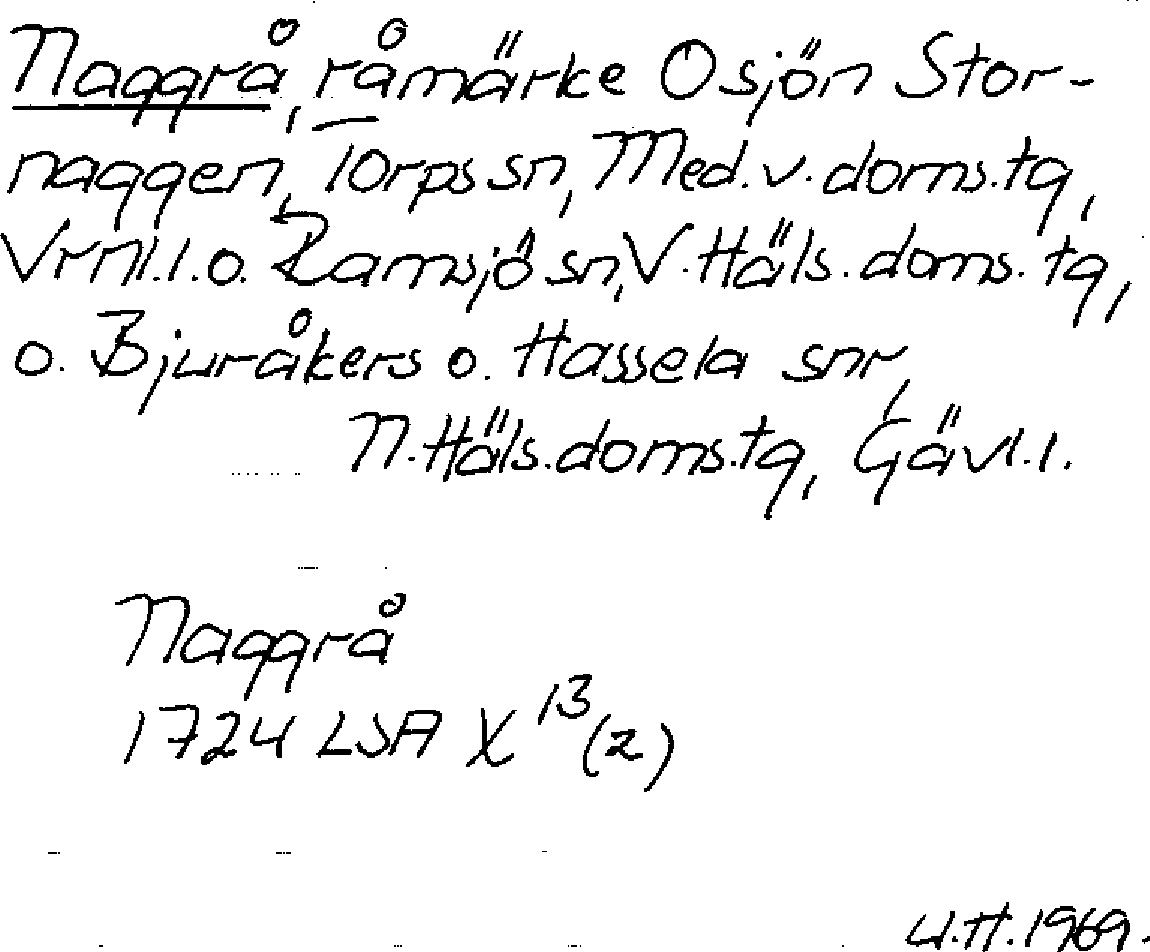 Naggrå, råmärke Osjön Stor-
naggen, Torps sn, Med.v.doms.tg,
Vrnl.l.o. Ramsjö sn, V.Häls.doms.tg,
o. Bjuråkers o. Hassela snr,
N.Häls.doms.tg, Gävl.l.
Naggrå
1724 LSA X 13(2)
U.H.1969.